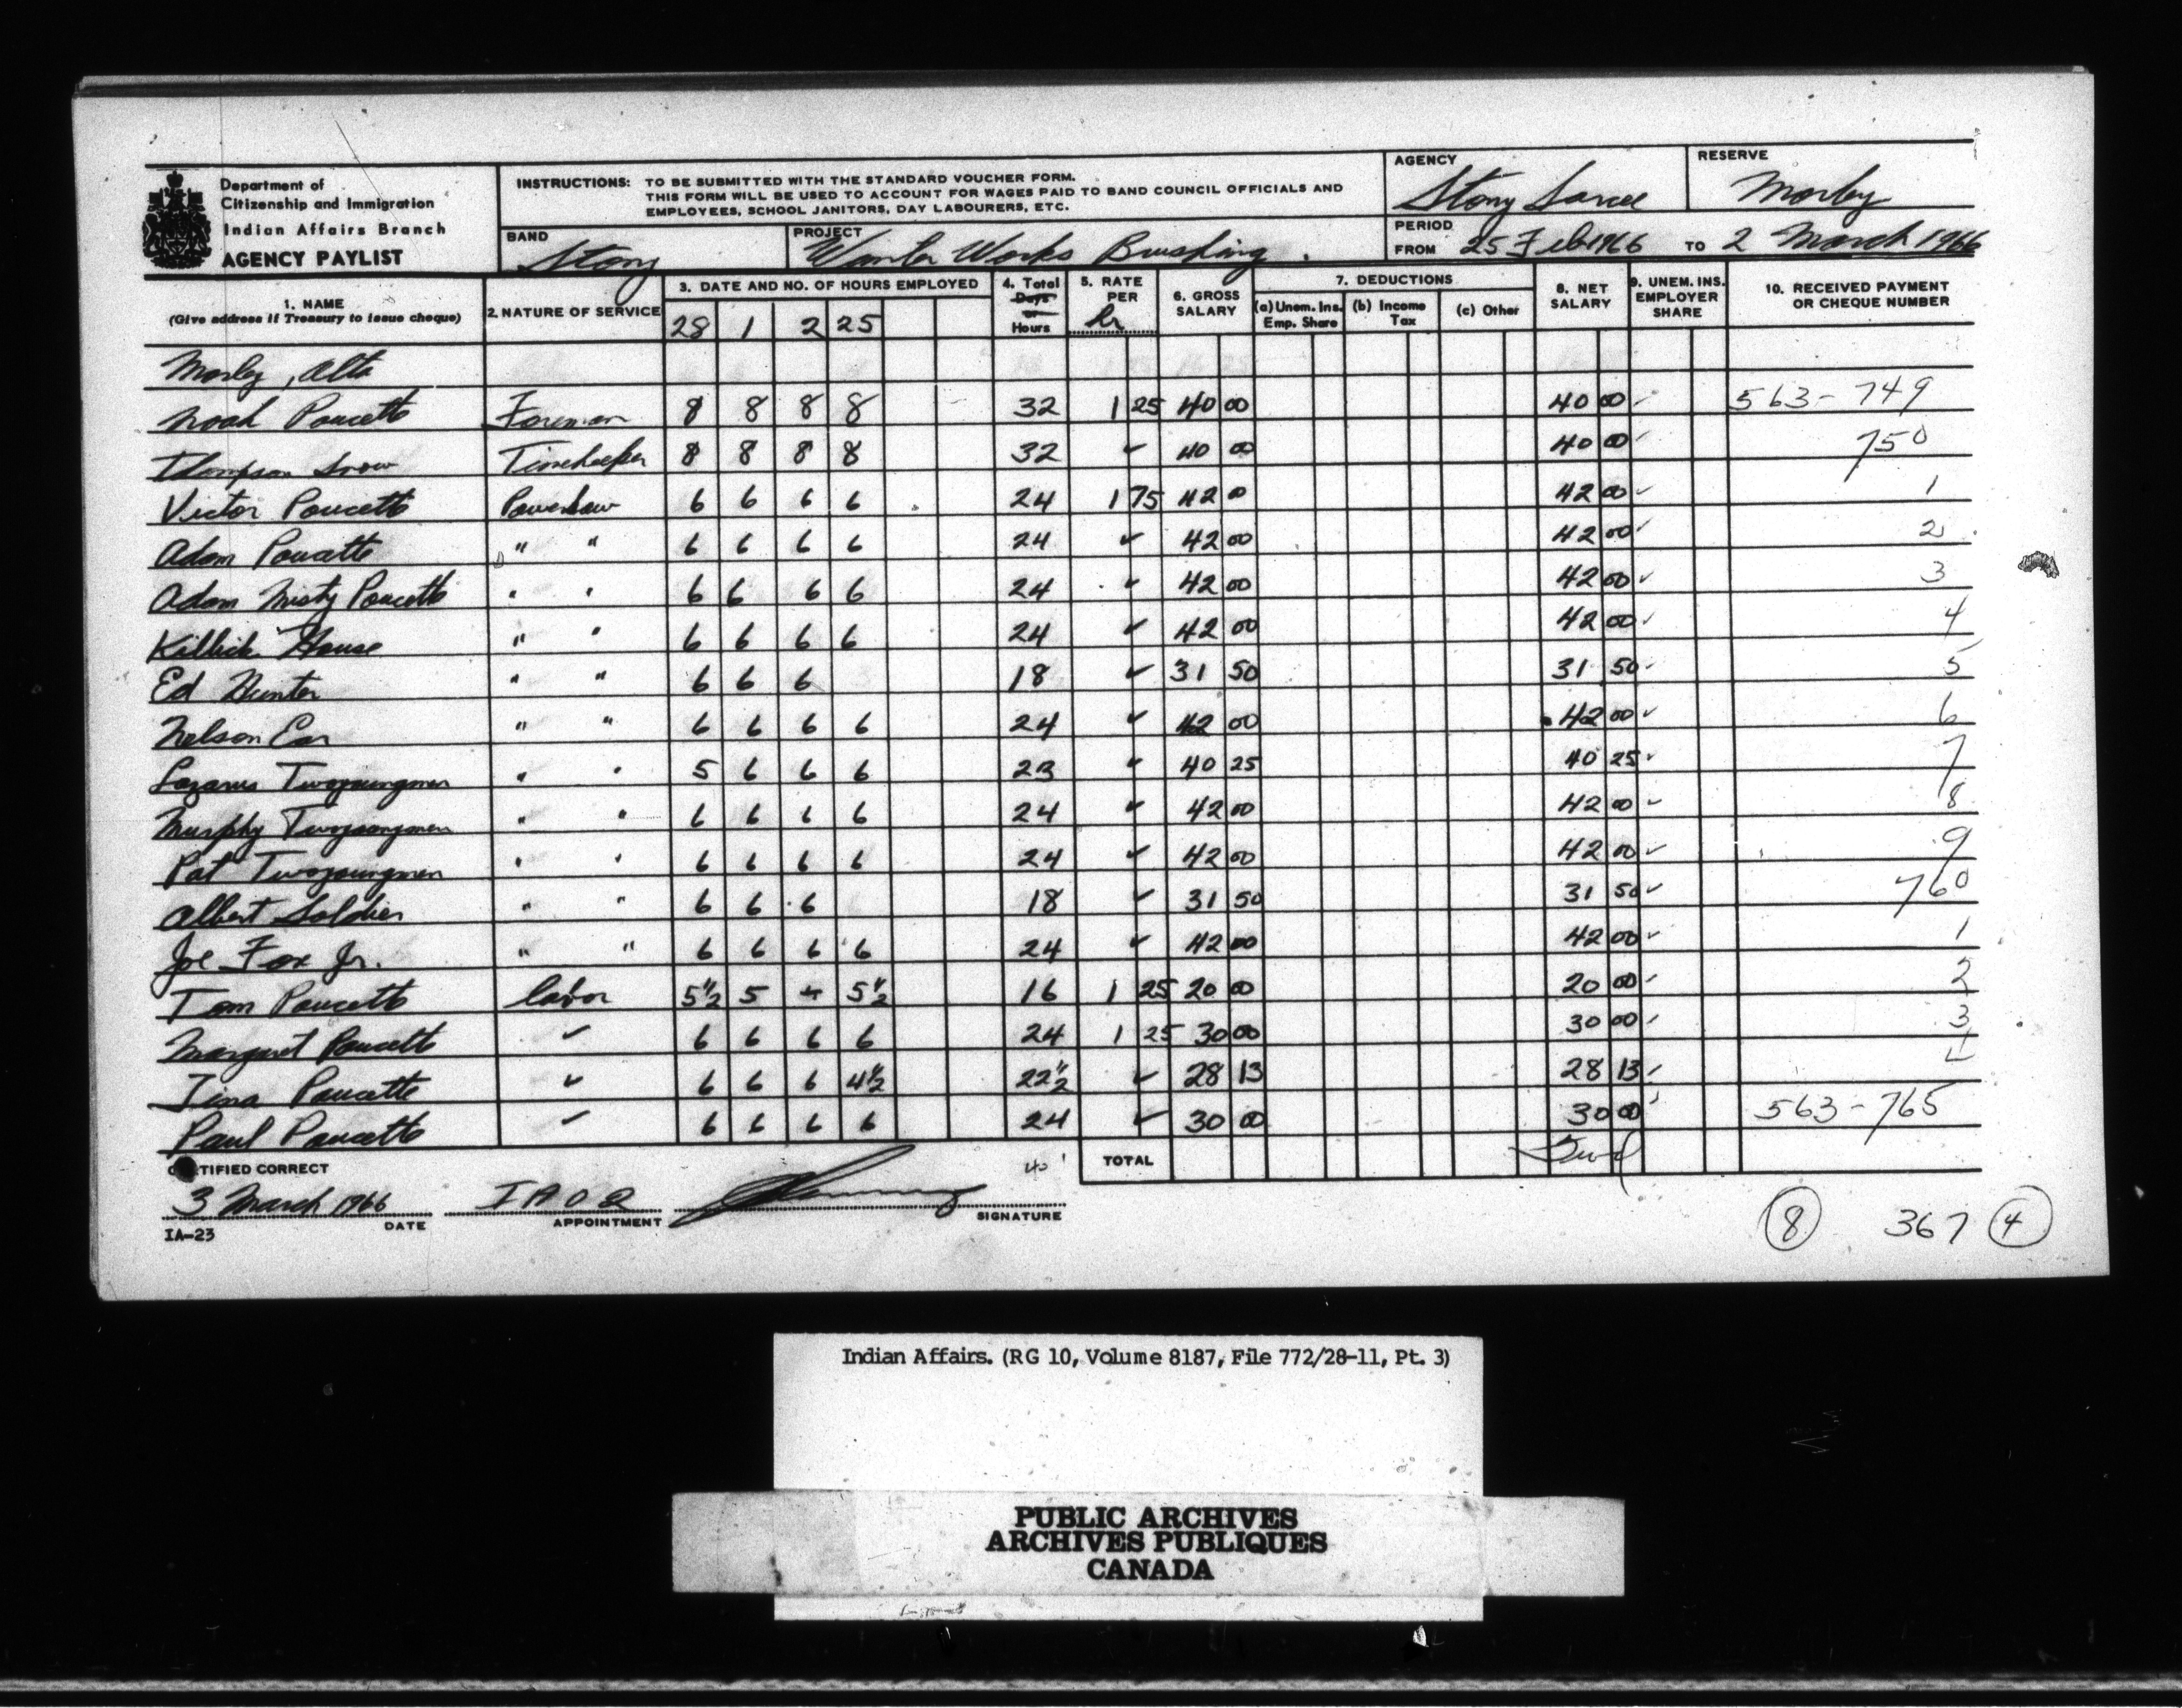 Department of
Citizenship and Immigration
Indian Affairs Branch
AGENCY PAYLIST
INSTRUCTIONS: TO BE SUBMITTED WITH THE STANDARD VOUCHER FORM.
THIS FORM WILL BE USED TO ACCOUNT FOR WAGES PAID TO BAND COUNCIL OFFICIALS AND
EMPLOYEES, SCHOOL JANITORS, DAY LABOURERS, ETC.
AGENCY Stony Sarcee
RESERVE Morley
BAND Stony
PROJECT Winter Works Brushing.
PERIOD FROM 25 Feb 1966 TO 2 March 1966
1. NAME (Give address if Treasury to issue cheque)
2. NATURE OF SERVICE
3. DATE AND NO. OF HOURS EMPLOYED
28 1 2 25
4. Total Days or Hours
5. RATE PER hr
6. GROSS SALARY
7. DEDUCTIONS
(a) Unem. Ins. Emp. Share
(b) Income Tax
(c) Other
8. NET SALARY
9. UNEM. INS. EMPLOYER SHARE
10. RECEIVED PAYMENT OR CHEQUE NUMBER
Morley, Alta
Noah Poucette Foreman 8 8 8 8 32 1 25 40 00 40 00 ✓ 563-749
Thompson Snow Timekeeper 8 8 8 8 32 ✓ 40 00 40 00 ✓ 750
Victor Poucette Powersaw 6 6 6 6 24 1 75 42 0 42 00 ✓ 1
Adam Poucette " " 6 6 6 6 24 ✓ 42 00 42 00 ✓ 2
Adam Misty Poucette " " 6 6 6 6 24 ✓ 42 00 42 00 ✓ 3
Killick House " " 6 6 6 6 24 ✓ 42 00 42 00 ✓ 4
Ed Hunter " " 6 6 6 18 ✓ 31 50 31 50 ✓ 5
Nelson Ear " " 6 6 6 6 24 ✓ 42 00 42 00 ✓ 6
Lazarus Twoyoungmen " " 5 6 6 6 23 ✓ 40 25 40 25 ✓ 7
Murphy Twoyoungmen " " 6 6 6 6 24 ✓ 42 00 42 00 ✓ 8
Pat Twoyoungmen " " 6 6 6 6 24 ✓ 42 00 42 00 ✓ 9
Albert Soldier " " 6 6 6 18 ✓ 31 50 31 50 ✓ 760
Joe Fox Jr. " " 6 6 6 6 24 ✓ 42 00 42 00 ✓ 1
Tom Poucette labor 5 1/2 5 4 5 1/2 16 1 25 20 00 20 00 ✓ 2
Margaret Poucette ✓ 6 6 6 6 24 1 25 30 00 30 00 ✓ 3
Tina Poucette ✓ 6 6 6 4 1/2 22 1/2 ✓ 28 13 28 13 ✓ 4
Paul Poucette ✓ 6 6 6 6 24 ✓ 30 00 30 00 ✓ 563-765
CERTIFIED CORRECT
TOTAL
3 March 1966 DATE
APPOINTMENT
SIGNATURE
IA-23
8 367 4
Indian Affairs. (RG 10, Volume 8187, File 772/28-11, Pt. 3)
PUBLIC ARCHIVES
ARCHIVES PUBLIQUES
CANADA